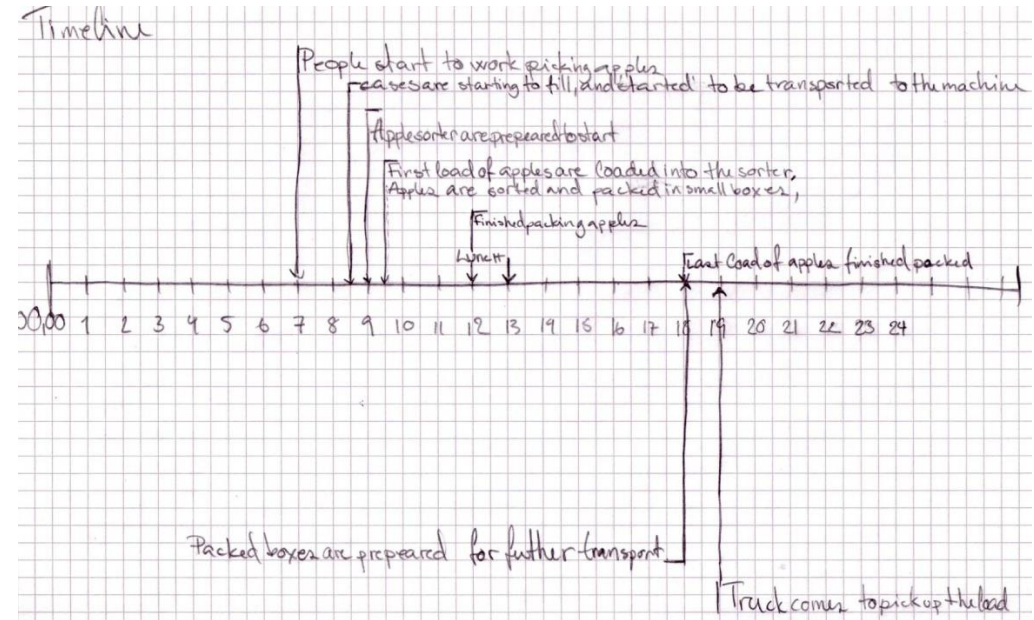 Timeline
People start to work picking apples
cases are starting to fill, and 'started' to be transported to the machine
Apple sorter are prepeared to start
First load of apples are loaded into the sorter,
Apples are sorted and packed in small boxes,
Finished packing apples
Lunch
Last load of apples finished packed
00,00 1 2 3 4 5 6 7 8 9 10 11 12 13 14 15 16 17 18 19 20 21 22 23 24
Packed boxes are prepeared for futher transport
Truck comes to pick up the load